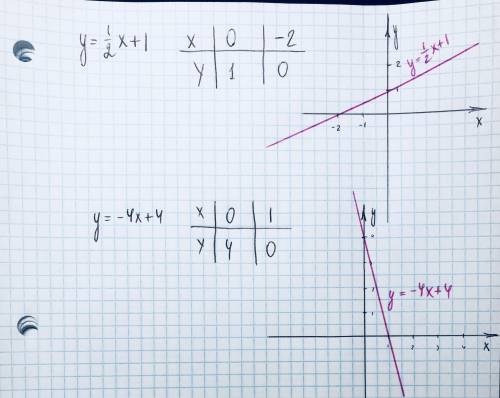 y = 1/2 x + 1
x 0 -2
y 1 0
y
2
1
-2 -1
x
y = 1/2 x + 1
y = -4x + 4
x 0 1
y 4 0
y
y = -4x + 4
1 2 3 4
x